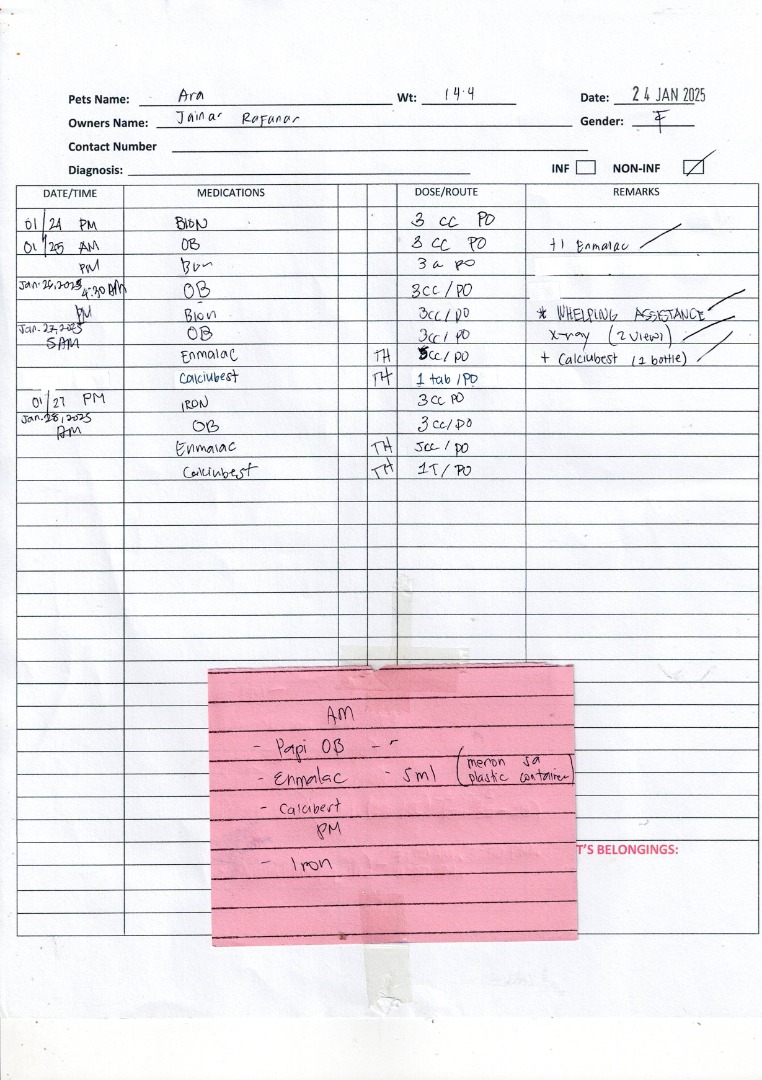 Pets Name: Ara Wt: 14.4 Date: 24 JAN 2025
Owners Name: Jainar Rafanar Gender: F
Contact Number
Diagnosis: INF NON-INF
DATE/TIME MEDICATIONS DOSE/ROUTE REMARKS
01/24 PM BION 3 cc PO
01/25 AM OB 3 CC PO +1 Enmalac
PM 3 a PO
Jan. 26, 2025 4:30 AM OB 3cc/PO
PM Bion 3cc/PO * WHELPING ASSISTANCE
Jan. 27, 2025 5AM OB 3cc/PO x-ray (2 view)
Enmalac TH 5cc/PO + Calciubest (1 bottle)
Calciubest TH 1 tab/PO
01/27 PM IRON 3cc PO
Jan. 28, 2025 AM OB 3cc/PO
Enmalac TH 5cc/PO
Calciubest TH 1T/PO
AM
- Papi OB -
- Enmalac - 5ml (meron sa plastic container)
- Calcibert
PM
- Iron
T'S BELONGINGS: